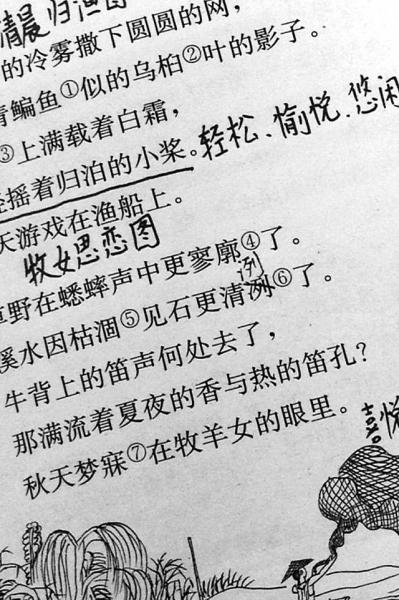 清晨归渔图
的冷雾撒下圆圆的网，
青鳊鱼①似的乌桕②叶的影子。
③上满载着白霜，
轻摇着归泊的小桨。轻松、愉悦、悠闲
天游戏在渔船上。
牧女思恋图
草野在蟋蟀声中更寥廓④了。
溪水因枯涸⑤见石更清洌⑥了。
列
牛背上的笛声何处去了，
那满流着夏夜的香与热的笛孔？
秋天梦寐⑦在牧羊女的眼里。